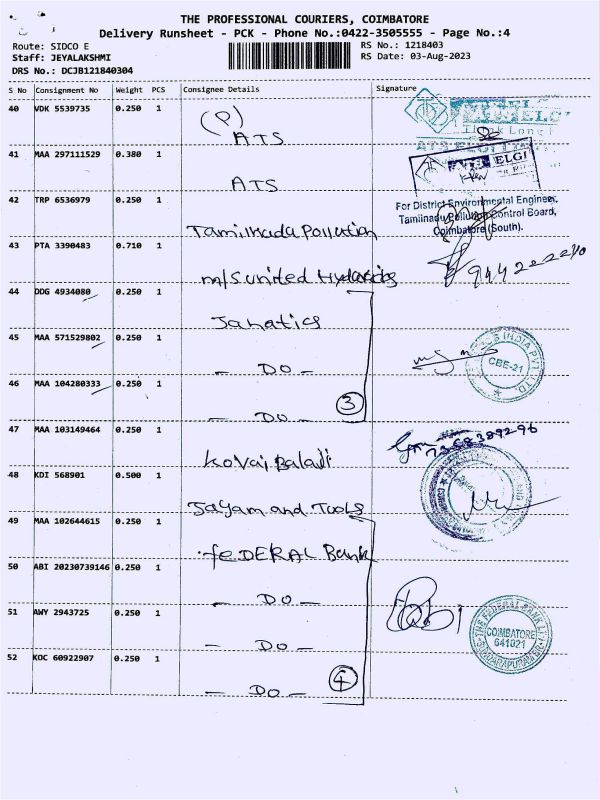 THE PROFESSIONAL COURIERS, COIMBATORE
Delivery Runsheet - PCK - Phone No.:0422-3505555 - Page No.:4
Route: SIDCO E
RS No.: 1218403
Staff: JEYALAKSHMI
RS Date: 03-Aug-2023
DRS No.: DCJB121840304
S No Consignment No Weight PCS Consignee Details Signature
40 VDK 5539735 0.250 1
(P)
ATS
41 MAA 297111529 0.380 1
ATS
ELGI
42 TRP 6536979 0.250 1
For District Environmental Engineer,
Tamilnadu Pollution Control Board,
Coimbatore (South).
Tamilnadu Pollution
43 PTA 3390483 0.710 1
m/s united Hydraulics
9442222210
44 DDG 4934080 0.250 1
Janatics
45 MAA 571529802 0.250 1
- DO -
INDIA PVT LTD
CBE-21
46 MAA 104280333 0.250 1
- DO -
3
47 MAA 103149464 0.250 1
Kovai Balaji
7368389296
48 KDI 568901 0.500 1
Jayam and Tools
49 MAA 102644615 0.250 1
FEDERAL Bank
50 ABI 20230739146 0.250 1
- DO -
51 AWY 2943725 0.250 1
- DO -
THE FEDERAL BANK LTD
COIMBATORE
641021
52 KOC 60922907 0.250 1
- DO -
4